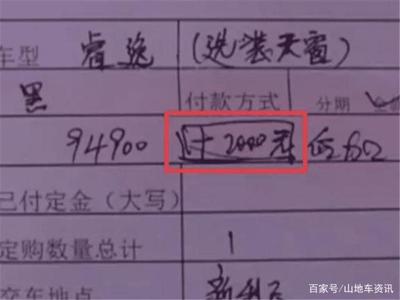 车型 睿逸 (选装天窗)
黑 付款方式 分期
94900 (+2000元)
已付定金(大写)
定购数量总计 1
交车地点
百家号/山地车资讯